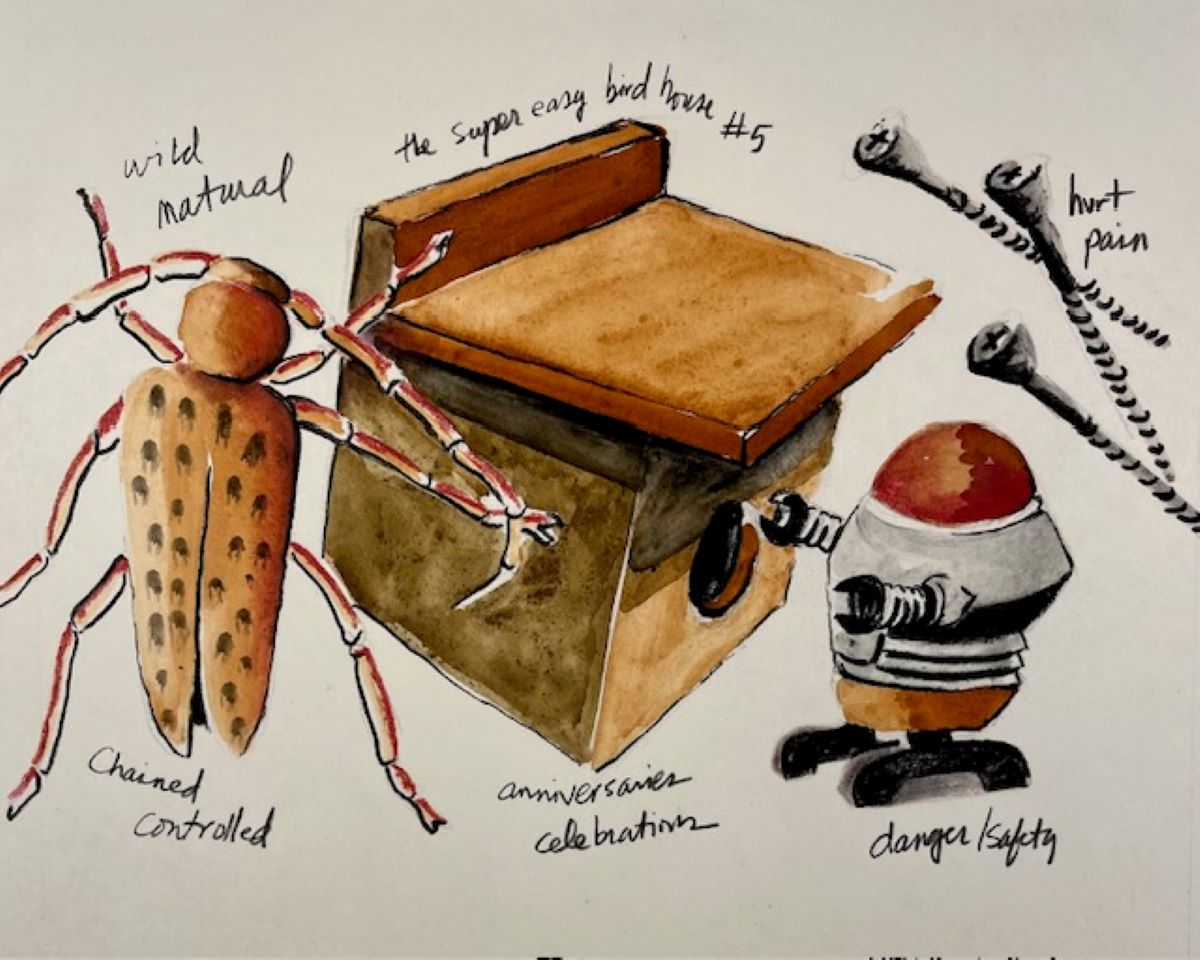 the super easy bird house #5
wild
natural
hurt
pain
Chained
controlled
anniversaries
celebrations
danger/safety